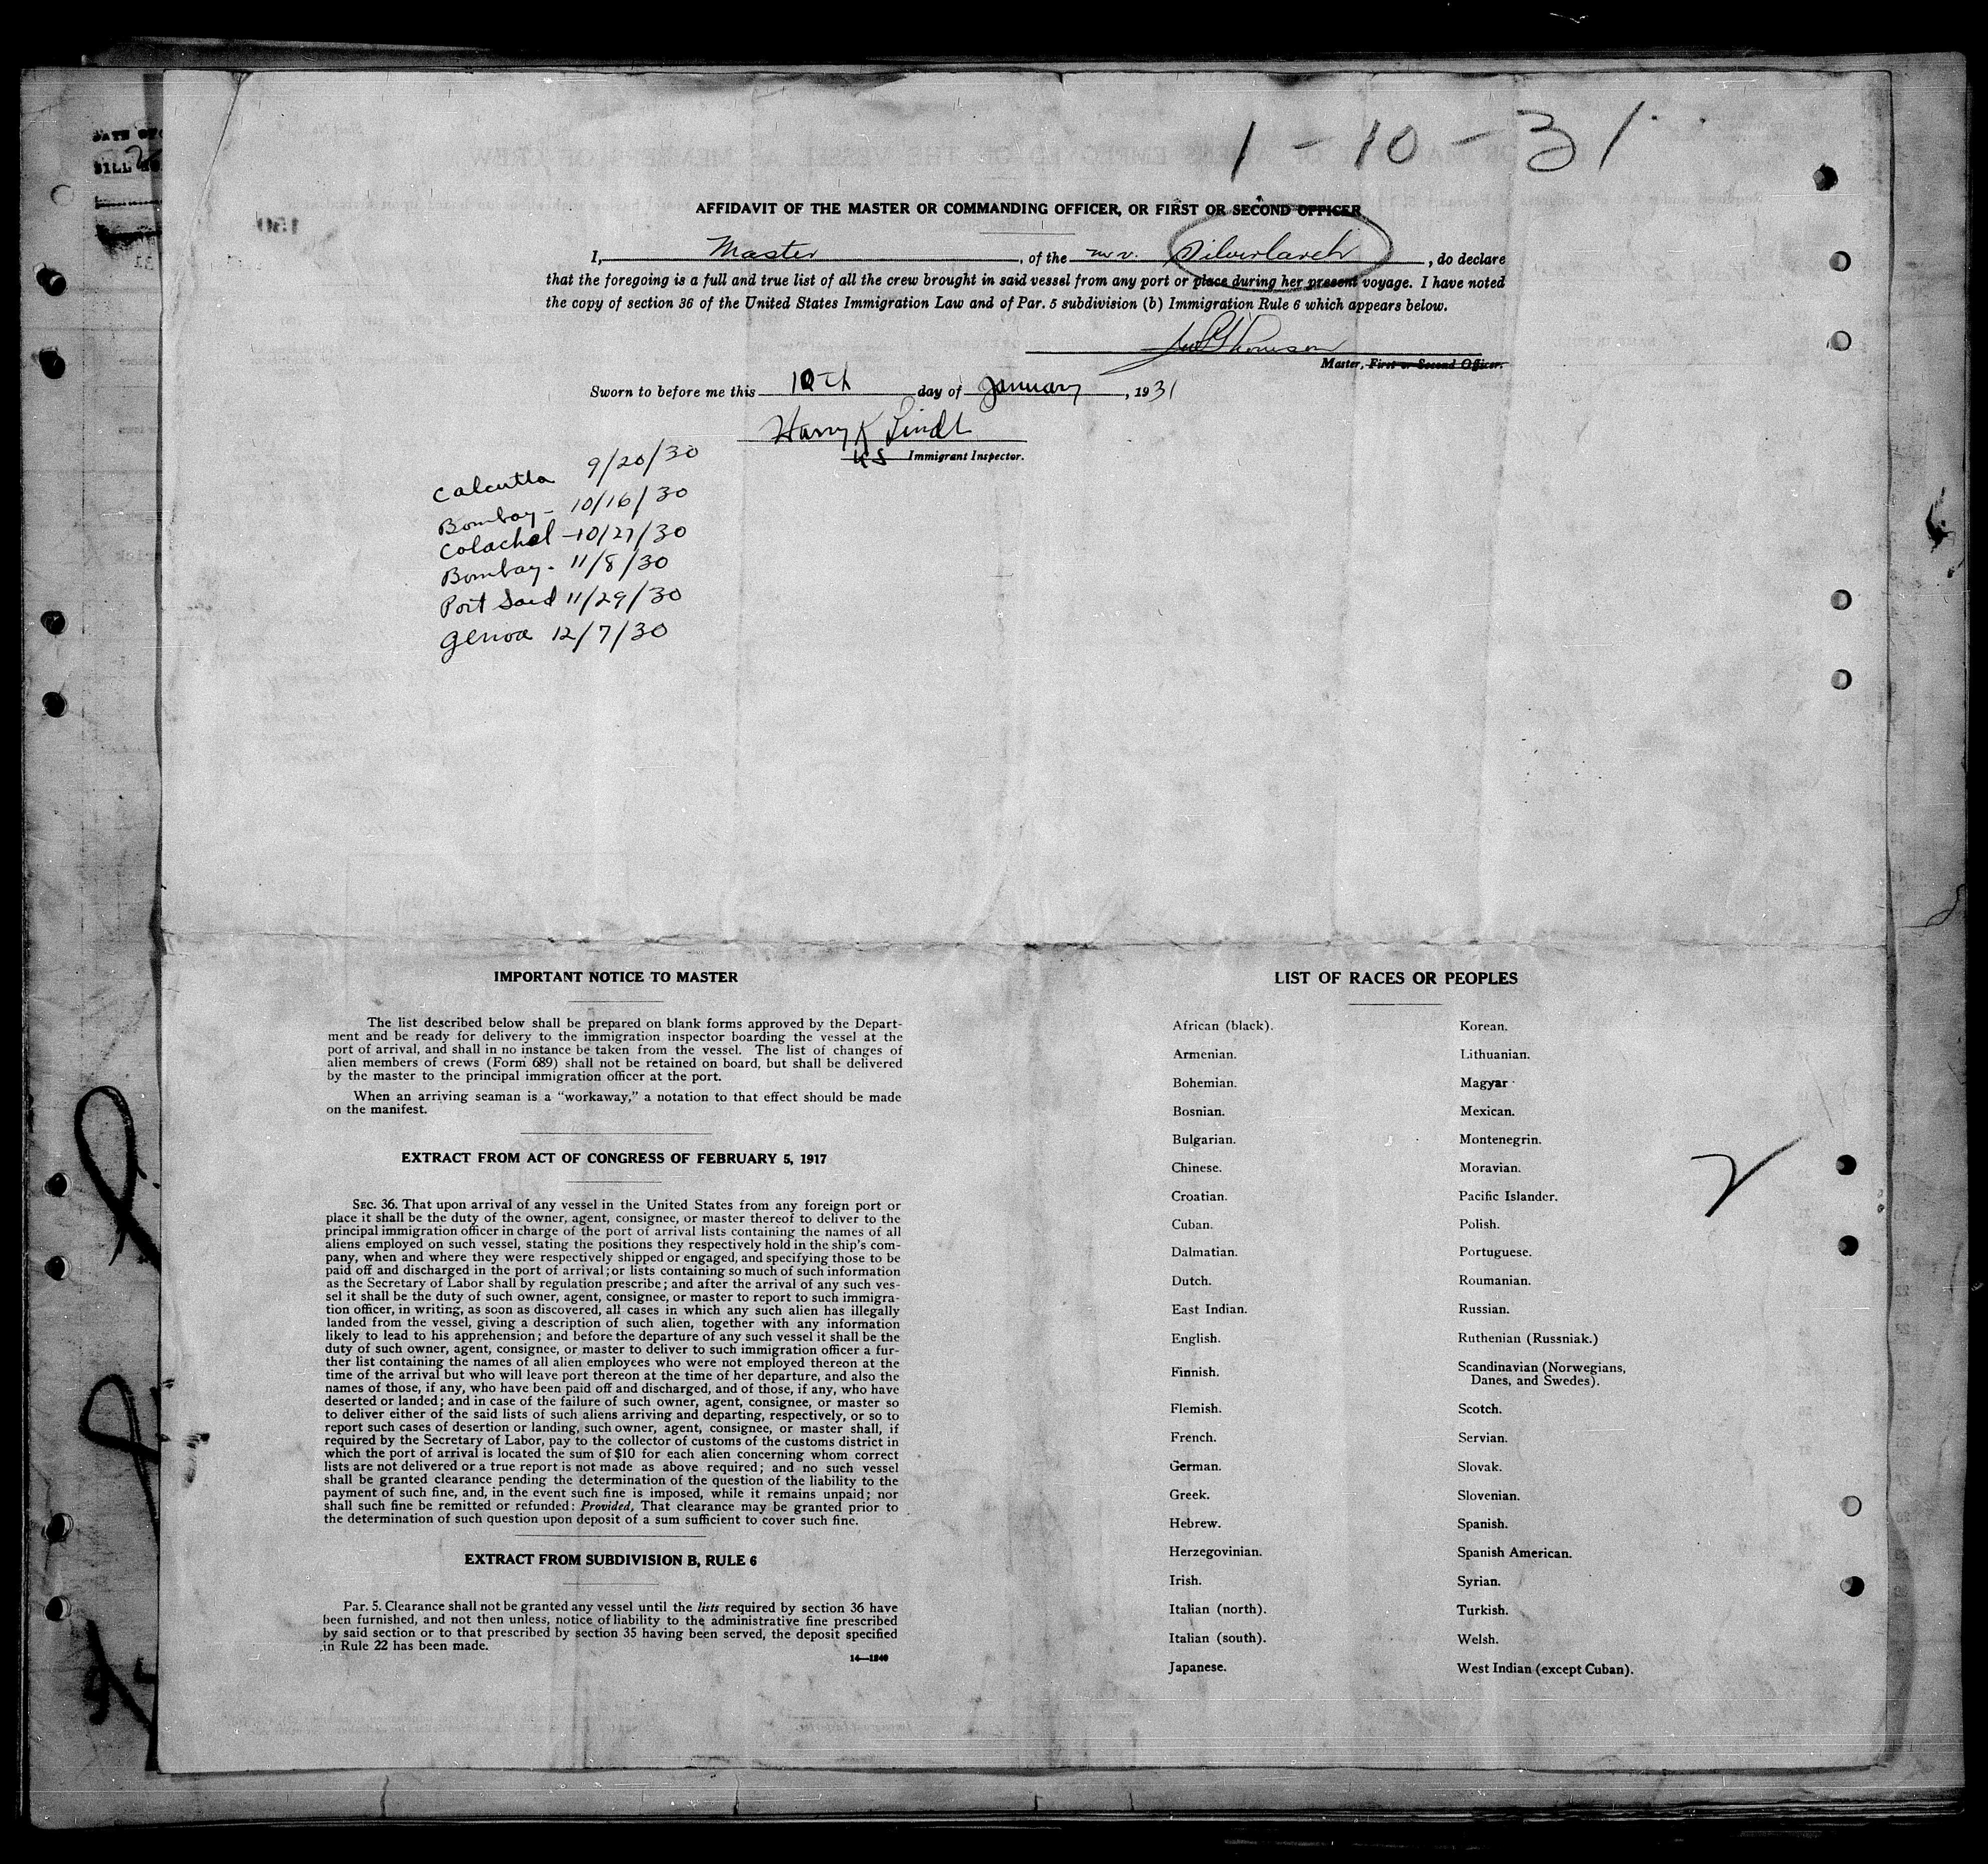 1-10-31
AFFIDAVIT OF THE MASTER OR COMMANDING OFFICER, OR FIRST OR SECOND OFFICER
I, Master, of the m.v. Silverlarch, do declare
that the foregoing is a full and true list of all the crew brought in said vessel from any port or place during her present voyage. I have noted
the copy of section 36 of the United States Immigration Law and of Par. 5 subdivision (b) Immigration Rule 6 which appears below.
Thomson
Master, First or Second Officer.
Sworn to before me this 10th day of January, 1931
Harry K Lindt
Immigrant Inspector.
Calcutta 9/20/30
Bombay - 10/16/30
Colachel - 10/27/30
Bombay - 11/8/30
Port Said 11/29/30
Genoa 12/7/30
IMPORTANT NOTICE TO MASTER
The list described below shall be prepared on blank forms approved by the Depart-
ment and be ready for delivery to the immigration inspector boarding the vessel at the
port of arrival, and shall in no instance be taken from the vessel. The list of changes of
alien members of crews (Form 689) shall not be retained on board, but shall be delivered
by the master to the principal immigration officer at the port.
When an arriving seaman is a "workaway," a notation to that effect should be made
on the manifest.
EXTRACT FROM ACT OF CONGRESS OF FEBRUARY 5, 1917
SEC. 36. That upon arrival of any vessel in the United States from any foreign port or
place it shall be the duty of the owner, agent, consignee, or master thereof to deliver to the
principal immigration officer in charge of the port of arrival lists containing the names of all
aliens employed on such vessel, stating the positions they respectively hold in the ship's com-
pany, when and where they were respectively shipped or engaged, and specifying those to be
paid off and discharged in the port of arrival; or lists containing so much of such information
as the Secretary of Labor shall by regulation prescribe; and after the arrival of any such ves-
sel it shall be the duty of such owner, agent, consignee, or master to report to such immigra-
tion officer, in writing, as soon as discovered, all cases in which any such alien has illegally
landed from the vessel, giving a description of such alien, together with any information
likely to lead to his apprehension; and before the departure of any such vessel it shall be the
duty of such owner, agent, consignee, or master to deliver to such immigration officer a fur-
ther list containing the names of all alien employees who were not employed thereon at the
time of the arrival but who will leave port thereon at the time of her departure, and also the
names of those, if any, who have been paid off and discharged, and of those, if any, who have
deserted or landed; and in case of the failure of such owner, agent, consignee, or master so
to deliver either of the said lists of such aliens arriving and departing, respectively, or so to
report such cases of desertion or landing, such owner, agent, consignee, or master shall, if
required by the Secretary of Labor, pay to the collector of customs of the customs district in
which the port of arrival is located the sum of $10 for each alien concerning whom correct
lists are not delivered or a true report is not made as above required; and no such vessel
shall be granted clearance pending the determination of the question of the liability to the
payment of such fine, and, in the event such fine is imposed, while it remains unpaid; nor
shall such fine be remitted or refunded: Provided, That clearance may be granted prior to
the determination of such question upon deposit of a sum sufficient to cover such fine.
EXTRACT FROM SUBDIVISION B, RULE 6
Par. 5. Clearance shall not be granted any vessel until the lists required by section 36 have
been furnished, and not then unless, notice of liability to the administrative fine prescribed
by said section or to that prescribed by section 35 having been served, the deposit specified
in Rule 22 has been made.
14—1240
LIST OF RACES OR PEOPLES
African (black).
Armenian.
Bohemian.
Bosnian.
Bulgarian.
Chinese.
Croatian.
Cuban.
Dalmatian.
Dutch.
East Indian.
English.
Finnish.
Flemish.
French.
German.
Greek.
Hebrew.
Herzegovinian.
Irish.
Italian (north).
Italian (south).
Japanese.
Korean.
Lithuanian.
Magyar
Mexican.
Montenegrin.
Moravian.
Pacific Islander.
Polish.
Portuguese.
Roumanian.
Russian.
Ruthenian (Russniak.)
Scandinavian (Norwegians,
Danes, and Swedes).
Scotch.
Servian.
Slovak.
Slovenian.
Spanish.
Spanish American.
Syrian.
Turkish.
Welsh.
West Indian (except Cuban).